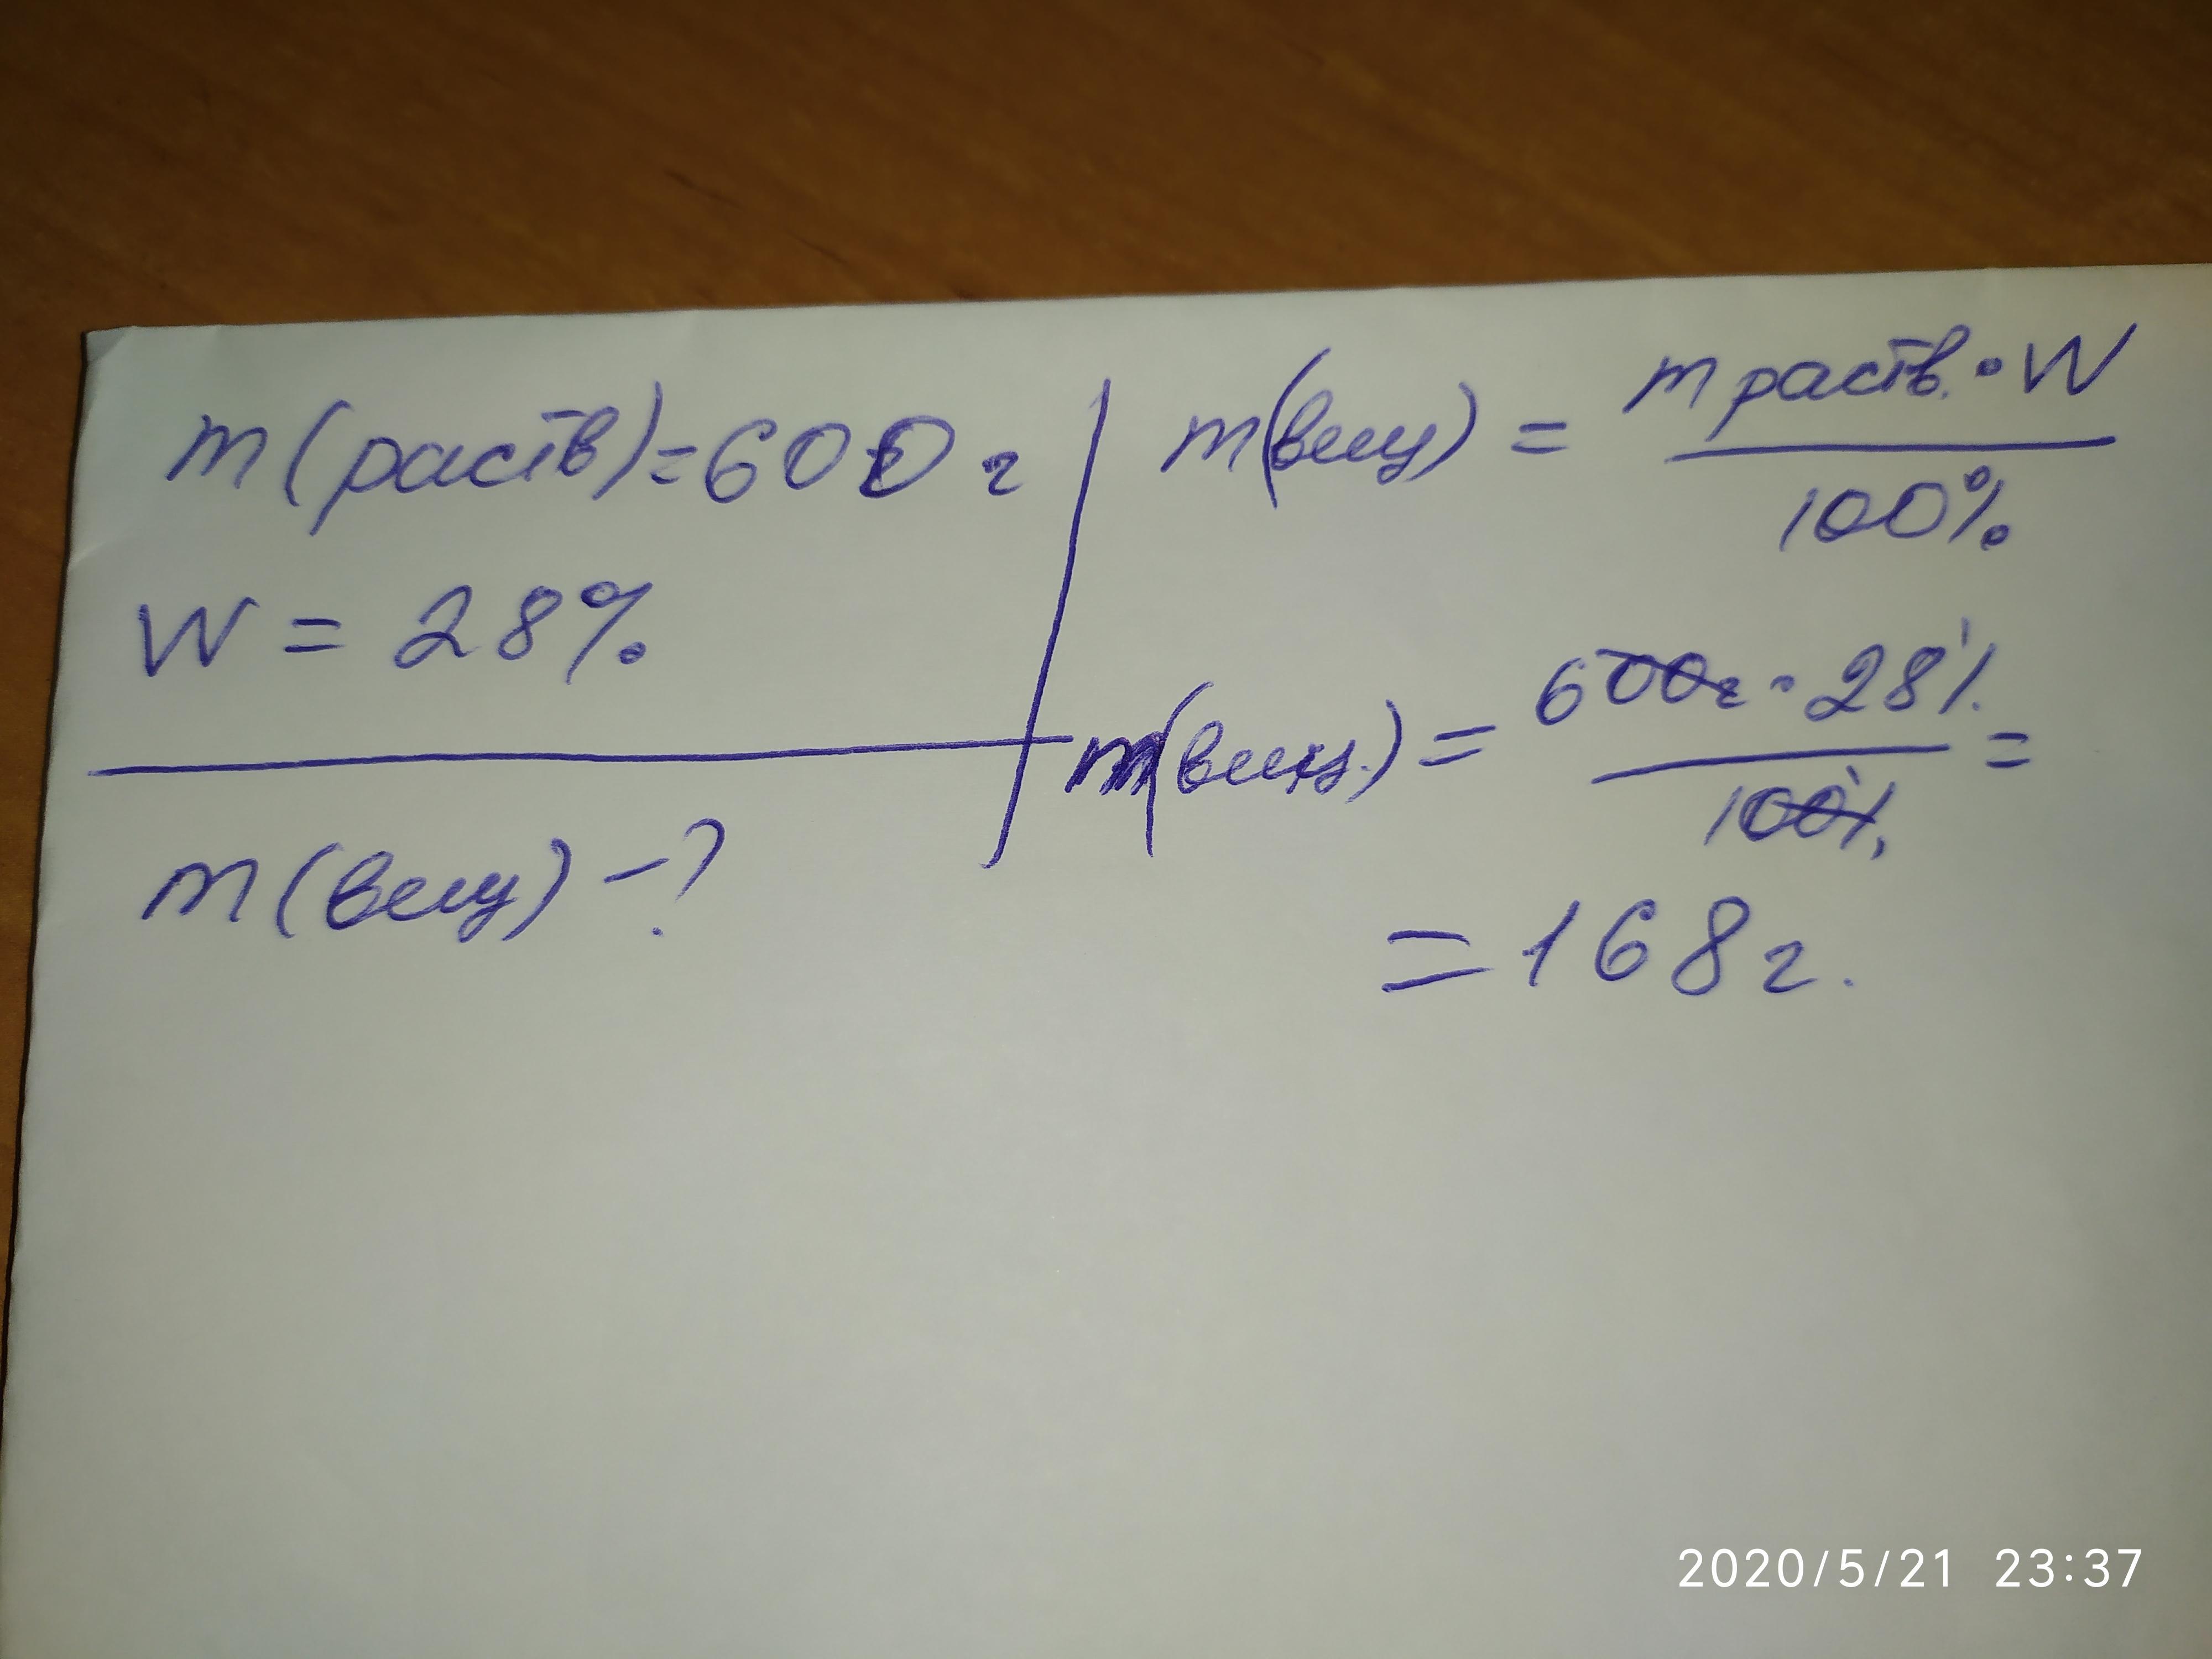 m(раств)=600 г
W = 28%
m(вещ) -?
m(вещ) = m раств. • W / 100%
m(вещ.) = 600г • 28% / 100% =
= 168 г.
2020/5/21 23:37